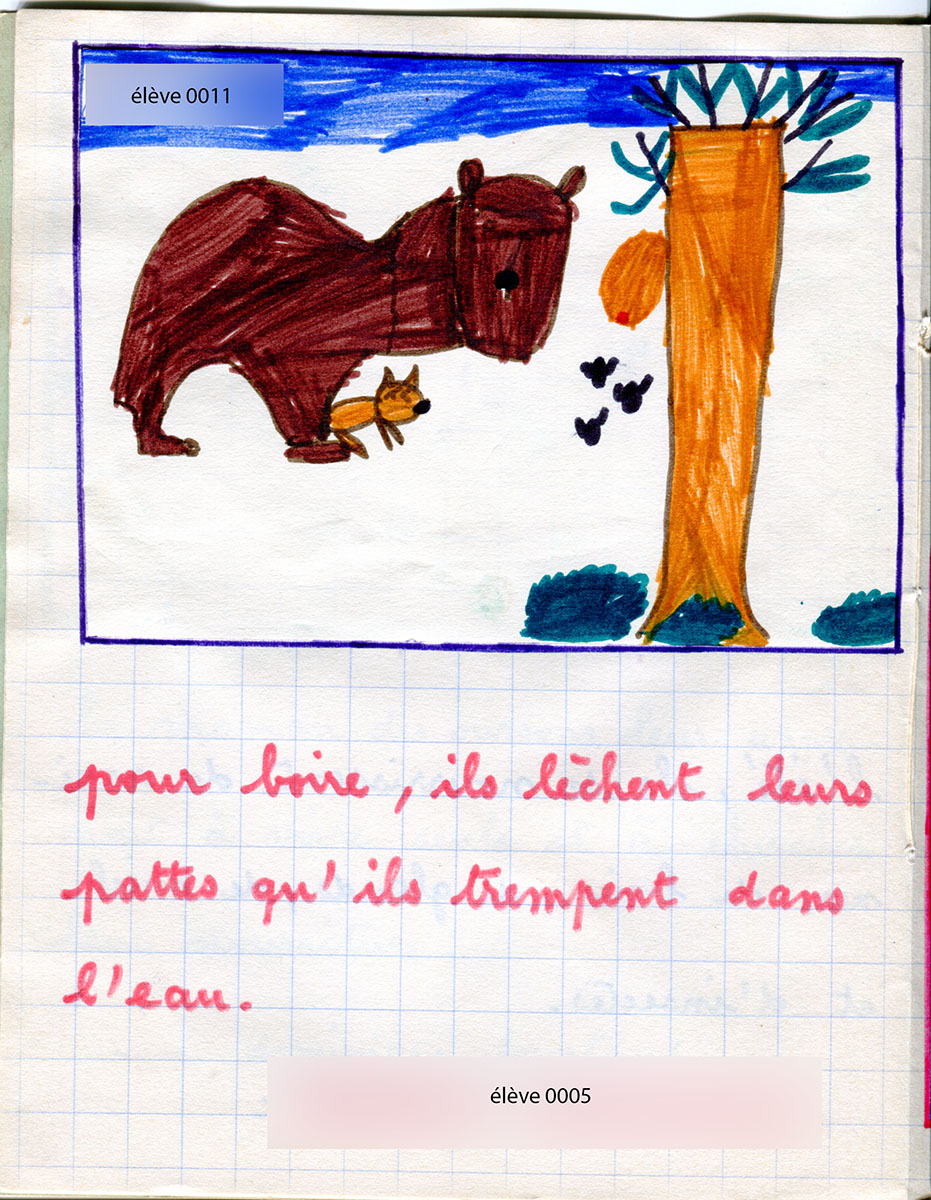 élève 0011
pour boire, ils lèchent leurs
pattes qu'ils trempent dans
l'eau.
élève 0005